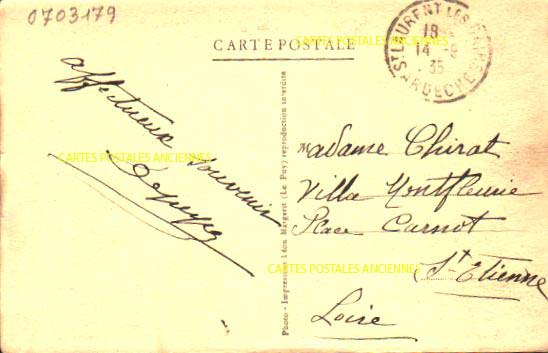 0703179
CARTE POSTALE
CARTES POSTALES ANCIENNES
ST LAURENT LES BAINS
18
14 - 8
35
ARDECHE
affectueux souvenir
CARTES POSTALES ANCIENNES
Madame Chirat
Villa Montfleurie
Place Carnot
St Etienne
Loire
CARTES POSTALES ANCIENNES
Photo - Impression Léon Margerit (Le Puy) reproduction interdite